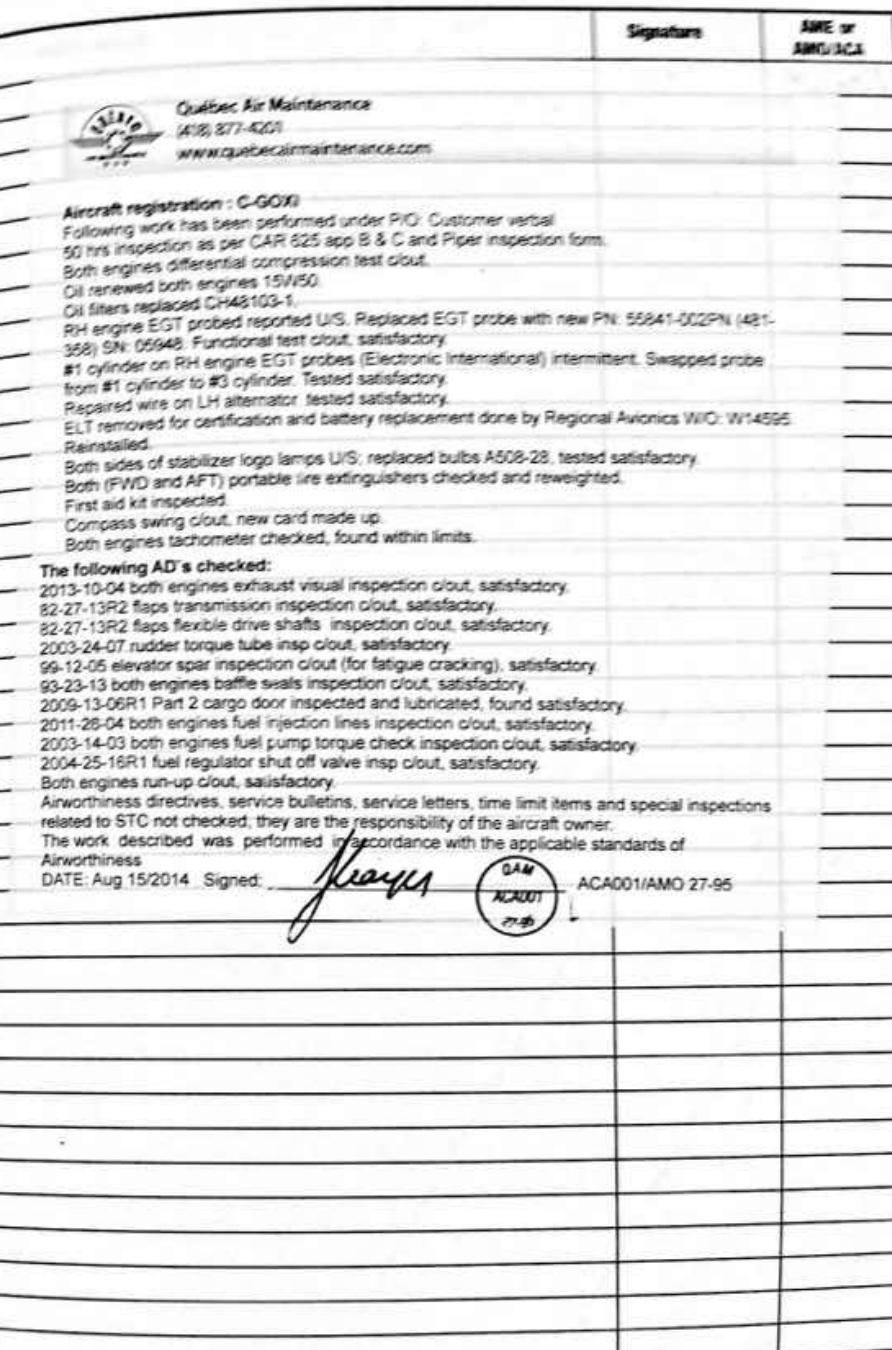 Signature AME or
AMO/ACA
Québec Air Maintenance
(418) 877-4201
www.quebecairmaintenance.com
Aircraft registration : C-GOXI
Following work has been performed under P/O: Customer verbal
50 hrs inspection as per CAR 625 app B & C and Piper inspection form.
Both engines differential compression test c/out.
Oil renewed both engines 15W50.
Oil filters replaced CH48103-1.
RH engine EGT probed reported U/S. Replaced EGT probe with new PN: 55841-002PN (481-
358) SN: 05948. Functional test c/out, satisfactory.
#1 cylinder on RH engine EGT probes (Electronic International) intermittent. Swapped probe
from #1 cylinder to #3 cylinder. Tested satisfactory.
Repaired wire on LH alternator tested satisfactory.
ELT removed for certification and battery replacement done by Regional Avionics W/O: W14595.
Reinstalled.
Both sides of stabilizer logo lamps U/S; replaced bulbs A508-28, tested satisfactory.
Both (FWD and AFT) portable fire extinguishers checked and reweighted.
First aid kit inspected.
Compass swing c/out, new card made up.
Both engines tachometer checked, found within limits.
The following AD's checked:
2013-10-04 both engines exhaust visual inspection c/out, satisfactory.
82-27-13R2 flaps transmission inspection c/out, satisfactory.
82-27-13R2 flaps flexible drive shafts inspection c/out, satisfactory.
2003-24-07 rudder torque tube insp c/out, satisfactory.
99-12-05 elevator spar inspection c/out (for fatigue cracking), satisfactory.
93-23-13 both engines baffle seals inspection c/out, satisfactory.
2009-13-06R1 Part 2 cargo door inspected and lubricated, found satisfactory.
2011-26-04 both engines fuel injection lines inspection c/out, satisfactory.
2003-14-03 both engines fuel pump torque check inspection c/out, satisfactory.
2004-25-16R1 fuel regulator shut off valve insp c/out, satisfactory.
Both engines run-up c/out, satisfactory.
Airworthiness directives, service bulletins, service letters, time limit items and special inspections
related to STC not checked, they are the responsibility of the aircraft owner.
The work described was performed in accordance with the applicable standards of
Airworthiness
DATE: Aug 15/2014 Signed: QAM ACA001 27-95 ACA001/AMO 27-95